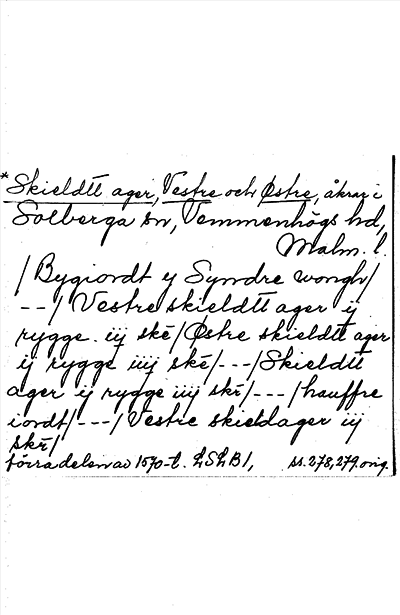 *Skieldtt ager, Vestre och Østre, åkrar i
Solberga sn, Vemmenhögs hd,
Malm. l.
/ Bygiordt y Syndre wongh /
--/ Vestre skieldtt ager ij
rygge. iij skē / Østre skieldtt ager
ij rygge iiij skē / --- / Skieldtt
ager ij rygge iiij skē / --- / hauffre
iordt / --- / Vestre skieldager iij
skē /
förra delen av 1570-t. LSLB1, ss. 278, 279. orig.